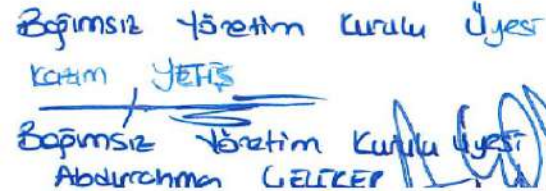 Bağımsız Yönetim Kurulu Üyesi
Kazım YETİŞ
Bağımsız Yönetim Kurulu Üyesi
Abdurrahman